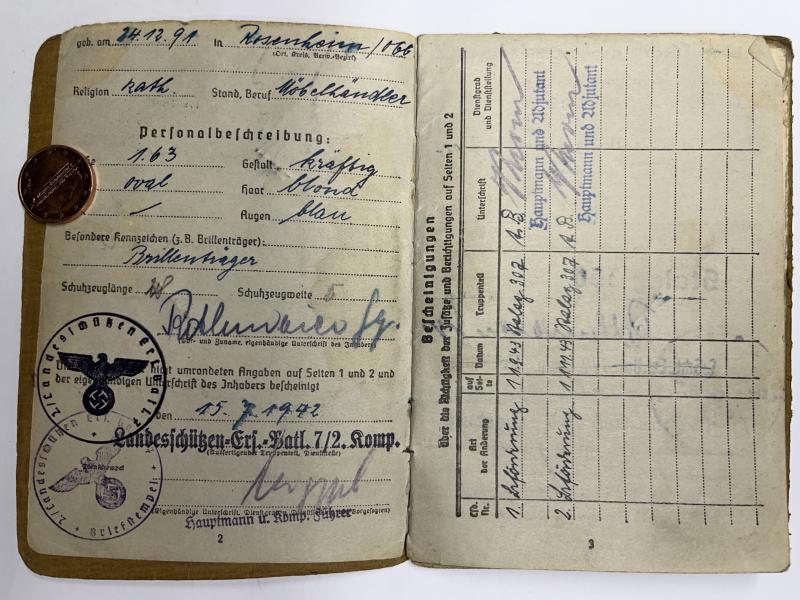 geb. am 24.12.91 in Rosenheim/Obb
(Ort, Kreis, Verw.-Bezirk)
Religion kath. Stand, Beruf Möbelhändler
Personalbeschreibung:
1.63 Gestalt kräftig
oval Haar blond
— Augen blau
Besondere Kennzeichen (z. B. Brillenträger):
Brillenträger
Schuhzeuglänge 28 Schuhzeugweite 5
(Vor- und Zuname, eigenhändige Unterschrift des Inhabers)
nicht umrandeten Angaben auf Seiten 1 und 2 und
der eigenhändigen Unterschrift des Inhabers bescheinigt
den 15.7.1942
Landesschützen-Ers.-Batl. 7/2. Komp.
(Ausfertigender Truppenteil, Dienststelle)
Dienststempel
(Eigenhändige Unterschrift, Dienstgrad
Hauptmann u. Komp. Führer
2
2/Landesschützen Ers. Batl. 7
2/Landesschützen Ers.
Briefstempel
Bescheinigungen
über die Richtigkeit der Zusätze und Berichtigungen auf Seiten 1 und 2
Lfd. Nr. Art der Änderung auf Seite Datum Truppenteil Unterschrift Dienstgrad und Dienststellung
1. Beförderung 1 1.9.43 Stalag 307
Hauptmann und Adjutant
2. Beförderung 1 Stalag 307
Hauptmann und Adjutant
3